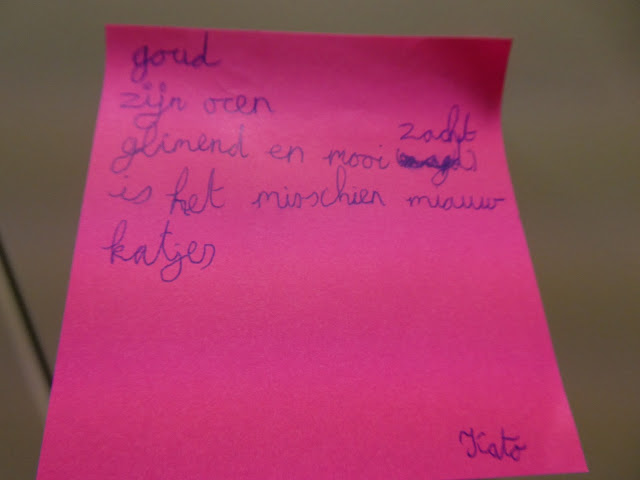 goud
zijn oren
glimend en mooi zacht
is het misschien miauw
katjes
Kato